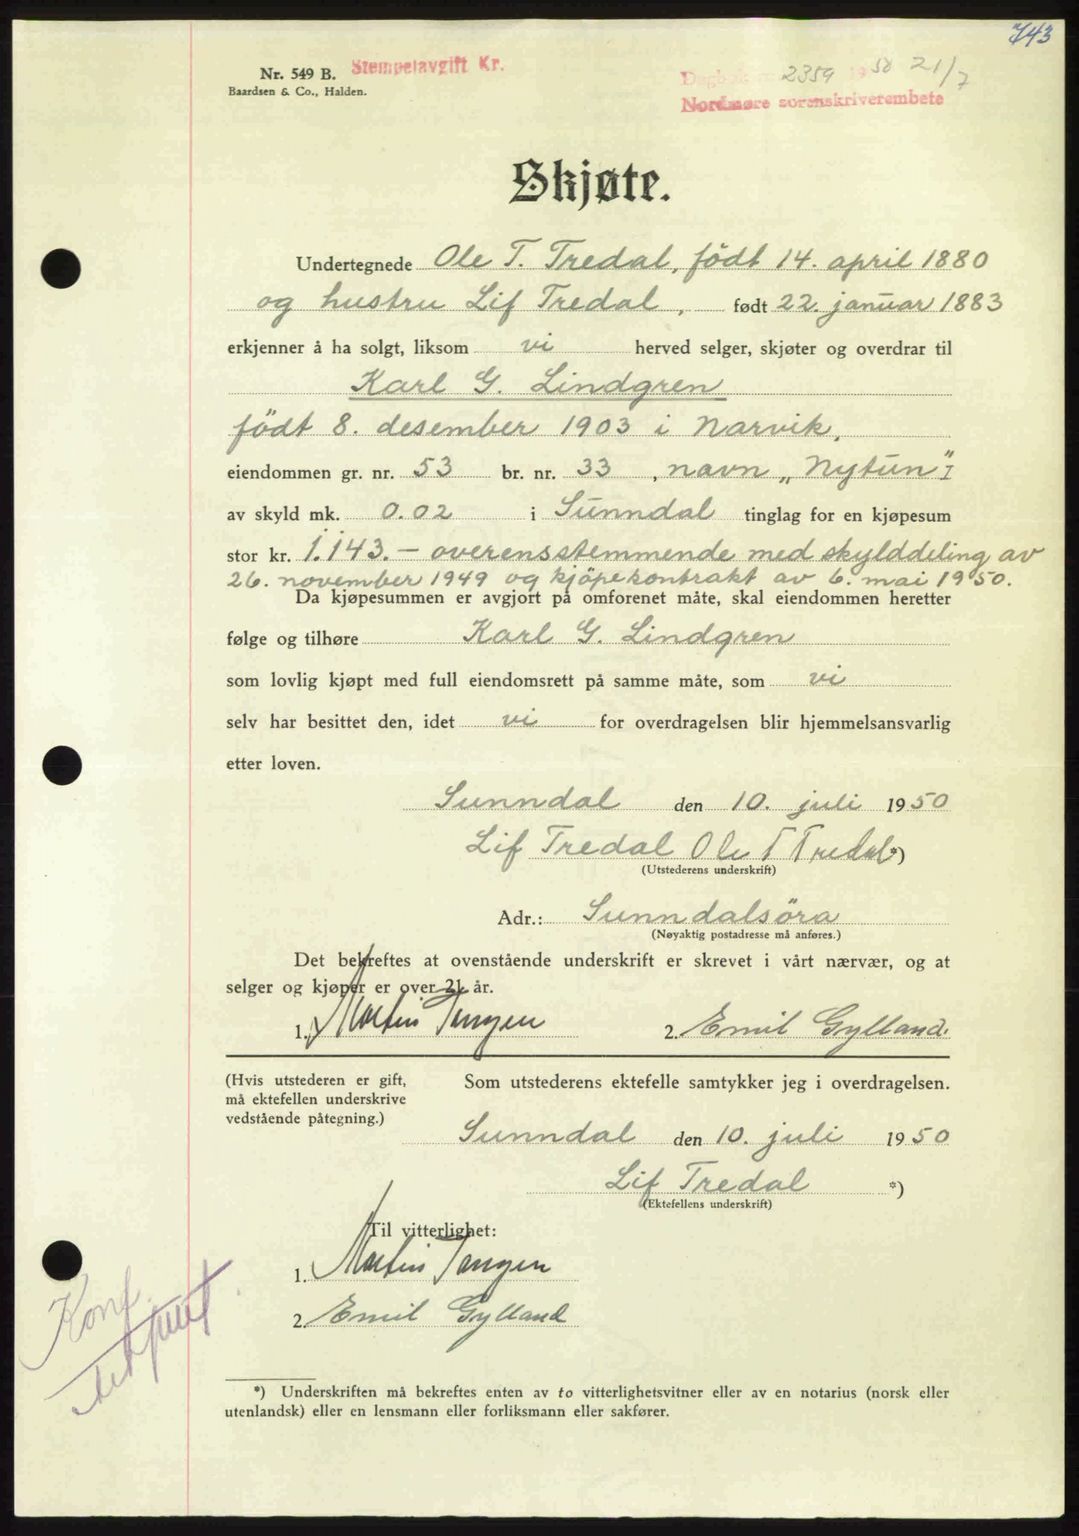 743
Nr. 549 B. Stempelavgift Kr.
Baardsen & Co., Halden.
Dagbok nr. 2359 1950 21/7
Nordmøre sorenskriverembete
Skjøte.
Undertegnede Ole T. Tredal, födt 14. april 1880
og hustru Lif Tredal, født 22. januar 1883
erkjenner å ha solgt, liksom vi herved selger, skjøter og overdrar til
Karl G. Lindgren
födt 8. desember 1903 i Narvik,
eiendommen gr. nr. 53 br. nr. 33, navn „Nytun” I
av skyld mk. 0.02 i Sunndal tinglag for en kjøpesum
stor kr. 1.143.- overensstemmende med skylddeling av
26. november 1949 og kjöpekontrakt av 6. mai 1950.
Da kjøpesummen er avgjort på omforenet måte, skal eiendommen heretter
følge og tilhøre Karl G. Lindgren
som lovlig kjøpt med full eiendomsrett på samme måte, som vi
selv har besittet den, idet vi for overdragelsen blir hjemmelsansvarlig
etter loven.
Sunndal den 10. juli 1950
Lif Tredal Ole T Tredal *)
(Utstederens underskrift)
Adr.: Sunndalsöra
(Nøyaktig postadresse må anføres.)
Det bekreftes at ovenstående underskrift er skrevet i vårt nærvær, og at
selger og kjøper er over 21 år.
1. Martin Tangen 2. Emil Gylland.
(Hvis utstederen er gift, Som utstederens ektefelle samtykker jeg i overdragelsen.
må ektefellen underskrive
vedstående påtegning.)
Sunndal den 10. juli 1950
Lif Tredal *)
(Ektefellens underskrift)
Til vitterlighet:
1. Martin Tangen
2. Emil Gylland
Konf.
*) Underskriften må bekreftes enten av to vitterlighetsvitner eller av en notarius (norsk eller
utenlandsk) eller en lensmann eller forliksmann eller sakfører.